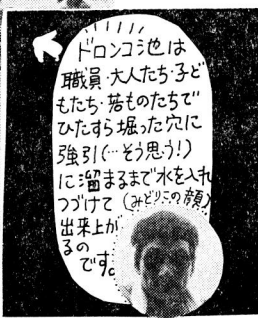 ドロンコ池は
職員・大人たち・子ど
もたち・若ものたちで
ひたすら堀った穴に
強引(…そう思う!)
に溜まるまで水を入れ
つづけて(みどりこの顔)
出来上が
るの
です。